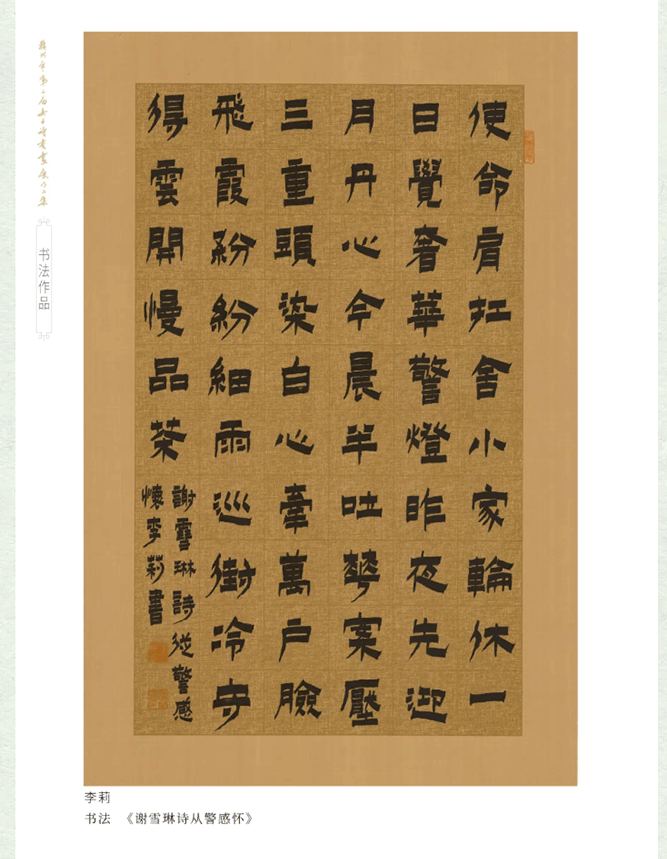 使命肩扛舍小家輪休一
日覺奢華警燈昨夜先迎
月丹心今晨半吐華案壓
三重頭染白心牽萬户臉
飛霞紛紛細雨巡街冷守
得雲開慢品茶
謝雪琳詩從警感
懷李莉書
书法作品
李莉
书法 《谢雪琳诗从警感怀》